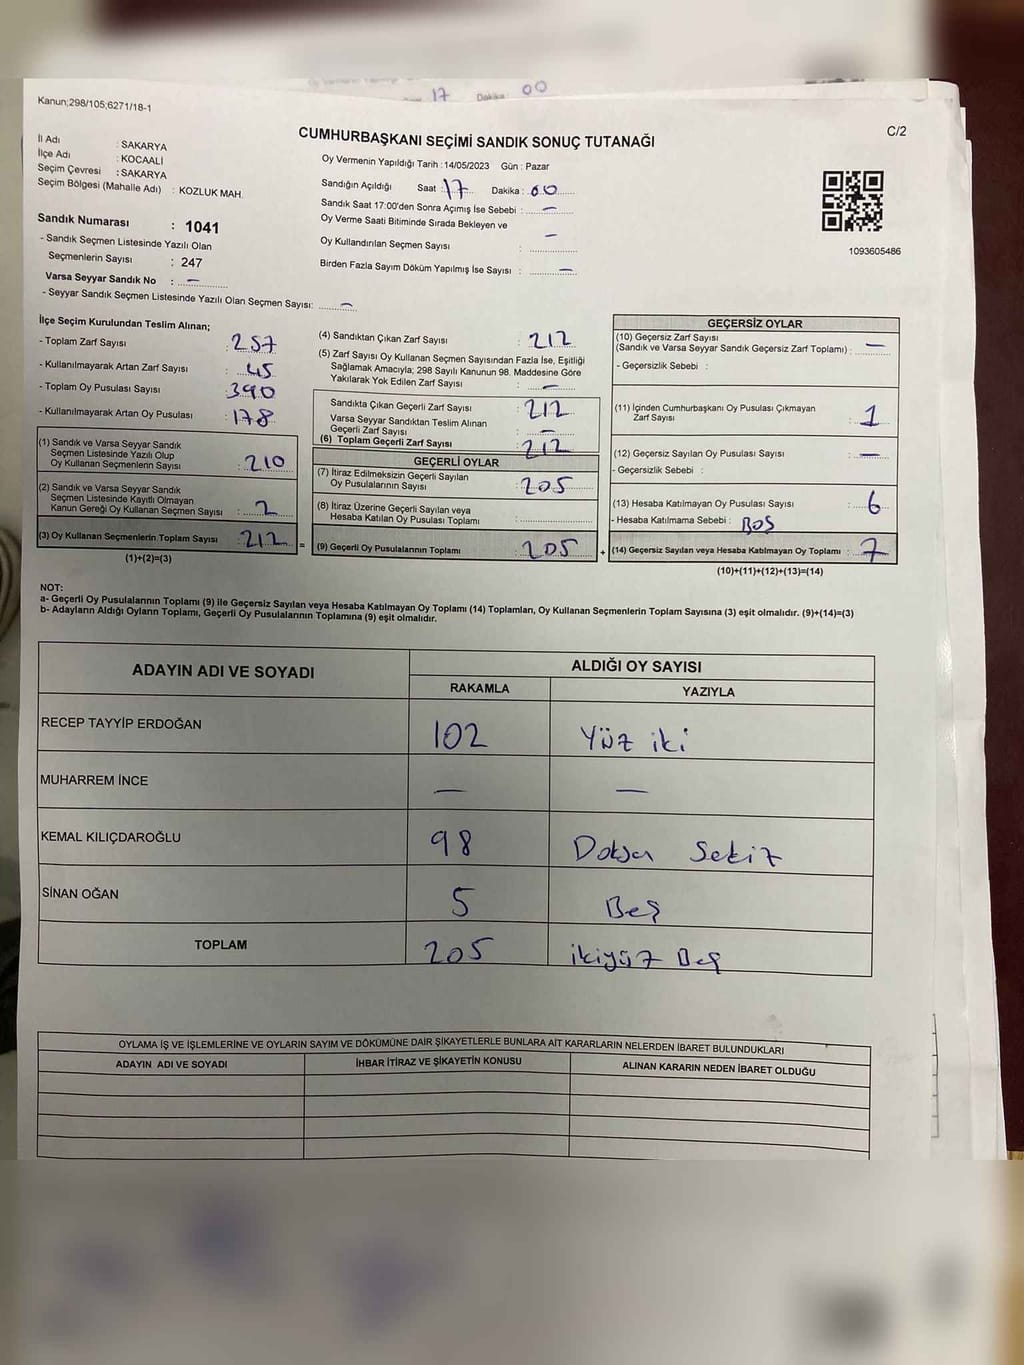 17 Dakika : 00
Kanun;298/105;6271/18-1
C/2
CUMHURBAŞKANI SEÇİMİ SANDIK SONUÇ TUTANAĞI
İl Adı : SAKARYA
İlçe Adı : KOCAALİ
Seçim Çevresi : SAKARYA
Seçim Bölgesi (Mahalle Adı) : KOZLUK MAH.
Sandık Numarası : 1041
- Sandık Seçmen Listesinde Yazılı Olan
Seçmenlerin Sayısı : 247
Varsa Seyyar Sandık No : —
- Seyyar Sandık Seçmen Listesinde Yazılı Olan Seçmen Sayısı: —
Oy Vermenin Yapıldığı Tarih :14/05/2023 Gün : Pazar
Sandığın Açıldığı Saat : 17 Dakika : 00
Sandık Saat 17:00'den Sonra Açımış İse Sebebi : —
Oy Verme Saati Bitiminde Sırada Bekleyen ve
Oy Kullandırılan Seçmen Sayısı : —
Birden Fazla Sayım Döküm Yapılmış İse Sayısı : —
1093605486
İlçe Seçim Kurulundan Teslim Alınan;
- Toplam Zarf Sayısı : 257
- Kullanılmayarak Artan Zarf Sayısı : 45
- Toplam Oy Pusulası Sayısı : 390
- Kullanılmayarak Artan Oy Pusulası : 178
(1) Sandık ve Varsa Seyyar Sandık
Seçmen Listesinde Yazılı Olup
Oy Kullanan Seçmenlerin Sayısı : 210
(2) Sandık ve Varsa Seyyar Sandık
Seçmen Listesinde Kayıtlı Olmayan
Kanun Gereği Oy Kullanan Seçmen Sayısı : 2
(3) Oy Kullanan Seçmenlerin Toplam Sayısı : 212
(1)+(2)=(3)
=
(4) Sandıktan Çıkan Zarf Sayısı : 212
(5) Zarf Sayısı Oy Kullanan Seçmen Sayısından Fazla İse, Eşitliği
Sağlamak Amacıyla; 298 Sayılı Kanunun 98. Maddesine Göre
Yakılarak Yok Edilen Zarf Sayısı : —
Sandıkta Çıkan Geçerli Zarf Sayısı : 212
Varsa Seyyar Sandıktan Teslim Alınan
Geçerli Zarf Sayısı : —
(6) Toplam Geçerli Zarf Sayısı : 212
GEÇERLİ OYLAR
(7) İtiraz Edilmeksizin Geçerli Sayılan
Oy Pusulalarının Sayısı : 205
(8) İtiraz Üzerine Geçerli Sayılan veya
Hesaba Katılan Oy Pusulası Toplamı :
(9) Geçerli Oy Pusulalarının Toplamı : 205
+
GEÇERSİZ OYLAR
(10) Geçersiz Zarf Sayısı
(Sandık ve Varsa Seyyar Sandık Geçersiz Zarf Toplamı) : —
- Geçersizlik Sebebi :
(11) İçinden Cumhurbaşkanı Oy Pusulası Çıkmayan
Zarf Sayısı : 1
(12) Geçersiz Sayılan Oy Pusulası Sayısı : —
- Geçersizlik Sebebi :
(13) Hesaba Katılmayan Oy Pusulası Sayısı : 6
- Hesaba Katılmama Sebebi : BOS
(14) Geçersiz Sayılan veya Hesaba Katılmayan Oy Toplamı : 7
(10)+(11)+(12)+(13)=(14)
NOT:
a- Geçerli Oy Pusulalarının Toplamı (9) ile Geçersiz Sayılan veya Hesaba Katılmayan Oy Toplamı (14) Toplamları, Oy Kullanan Seçmenlerin Toplam Sayısına (3) eşit olmalıdır. (9)+(14)=(3)
b- Adayların Aldığı Oyların Toplamı, Geçerli Oy Pusulalarının Toplamına (9) eşit olmalıdır.
ADAYIN ADI VE SOYADI ALDIĞI OY SAYISI
RAKAMLA YAZIYLA
RECEP TAYYİP ERDOĞAN 102 Yüz iki
MUHARREM İNCE — —
KEMAL KILIÇDAROĞLU 98 Doksan Sekiz
SİNAN OĞAN 5 Beş
TOPLAM 205 ikiyüz Beş
OYLAMA İŞ VE İŞLEMLERİNE VE OYLARIN SAYIM VE DÖKÜMÜNE DAİR ŞİKAYETLERLE BUNLARA AİT KARARLARIN NELERDEN İBARET BULUNDUKLARI
ADAYIN ADI VE SOYADI İHBAR İTİRAZ VE ŞİKAYETİN KONUSU ALINAN KARARIN NEDEN İBARET OLDUĞU